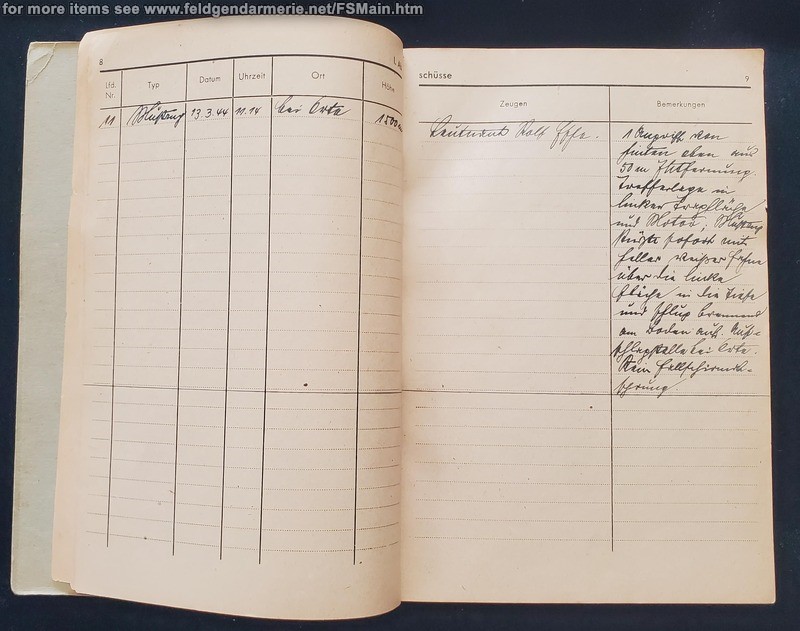 for more items see www.feldgendarmerie.net/FSMain.htm
8
Lfd. Nr.
Typ
Datum
Uhrzeit
Ort
Höhe
11 Mustang 13.3.44 11.14 bei Orte 1500 m
schüsse
9
Zeugen
Bemerkungen
Leutnant Rolf
1 Angriff von
hinten oben aus
50 m Entfernung.
Trefferlage in
linker Tragfläche
und Motor, Mustang
stürzte sofort mit
heller weißer Fahne
über die linke
Fläche in die Tiefe
und schlug brennend
am Boden auf. Auf-
schlagstelle bei Orte.
Kein Fallschirmab-
sprung.